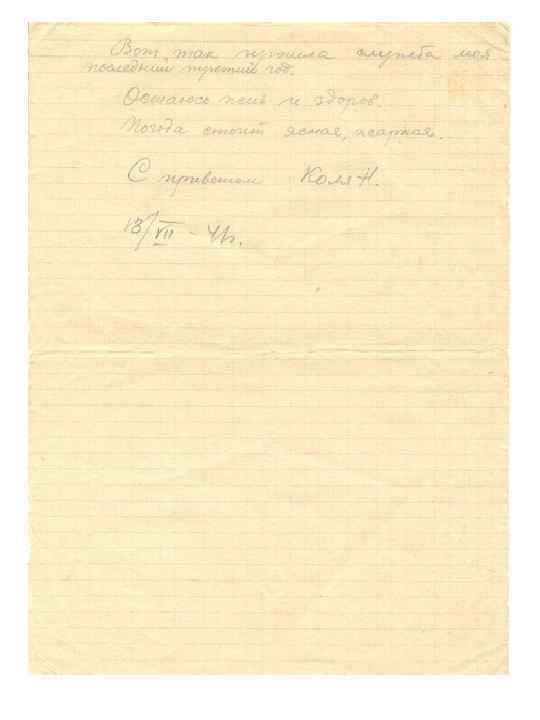 Вот, так прошла служба моя
последний третий год.
Остаюсь жив и здоров.
Погода стоит ясная, жаркая.
С приветом Коля Н.
13/VII – 41г.